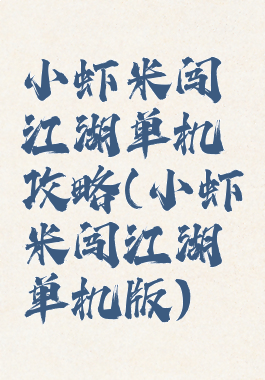 小虾米闯
江湖单机
攻略(小虾
米闯江湖
单机版)